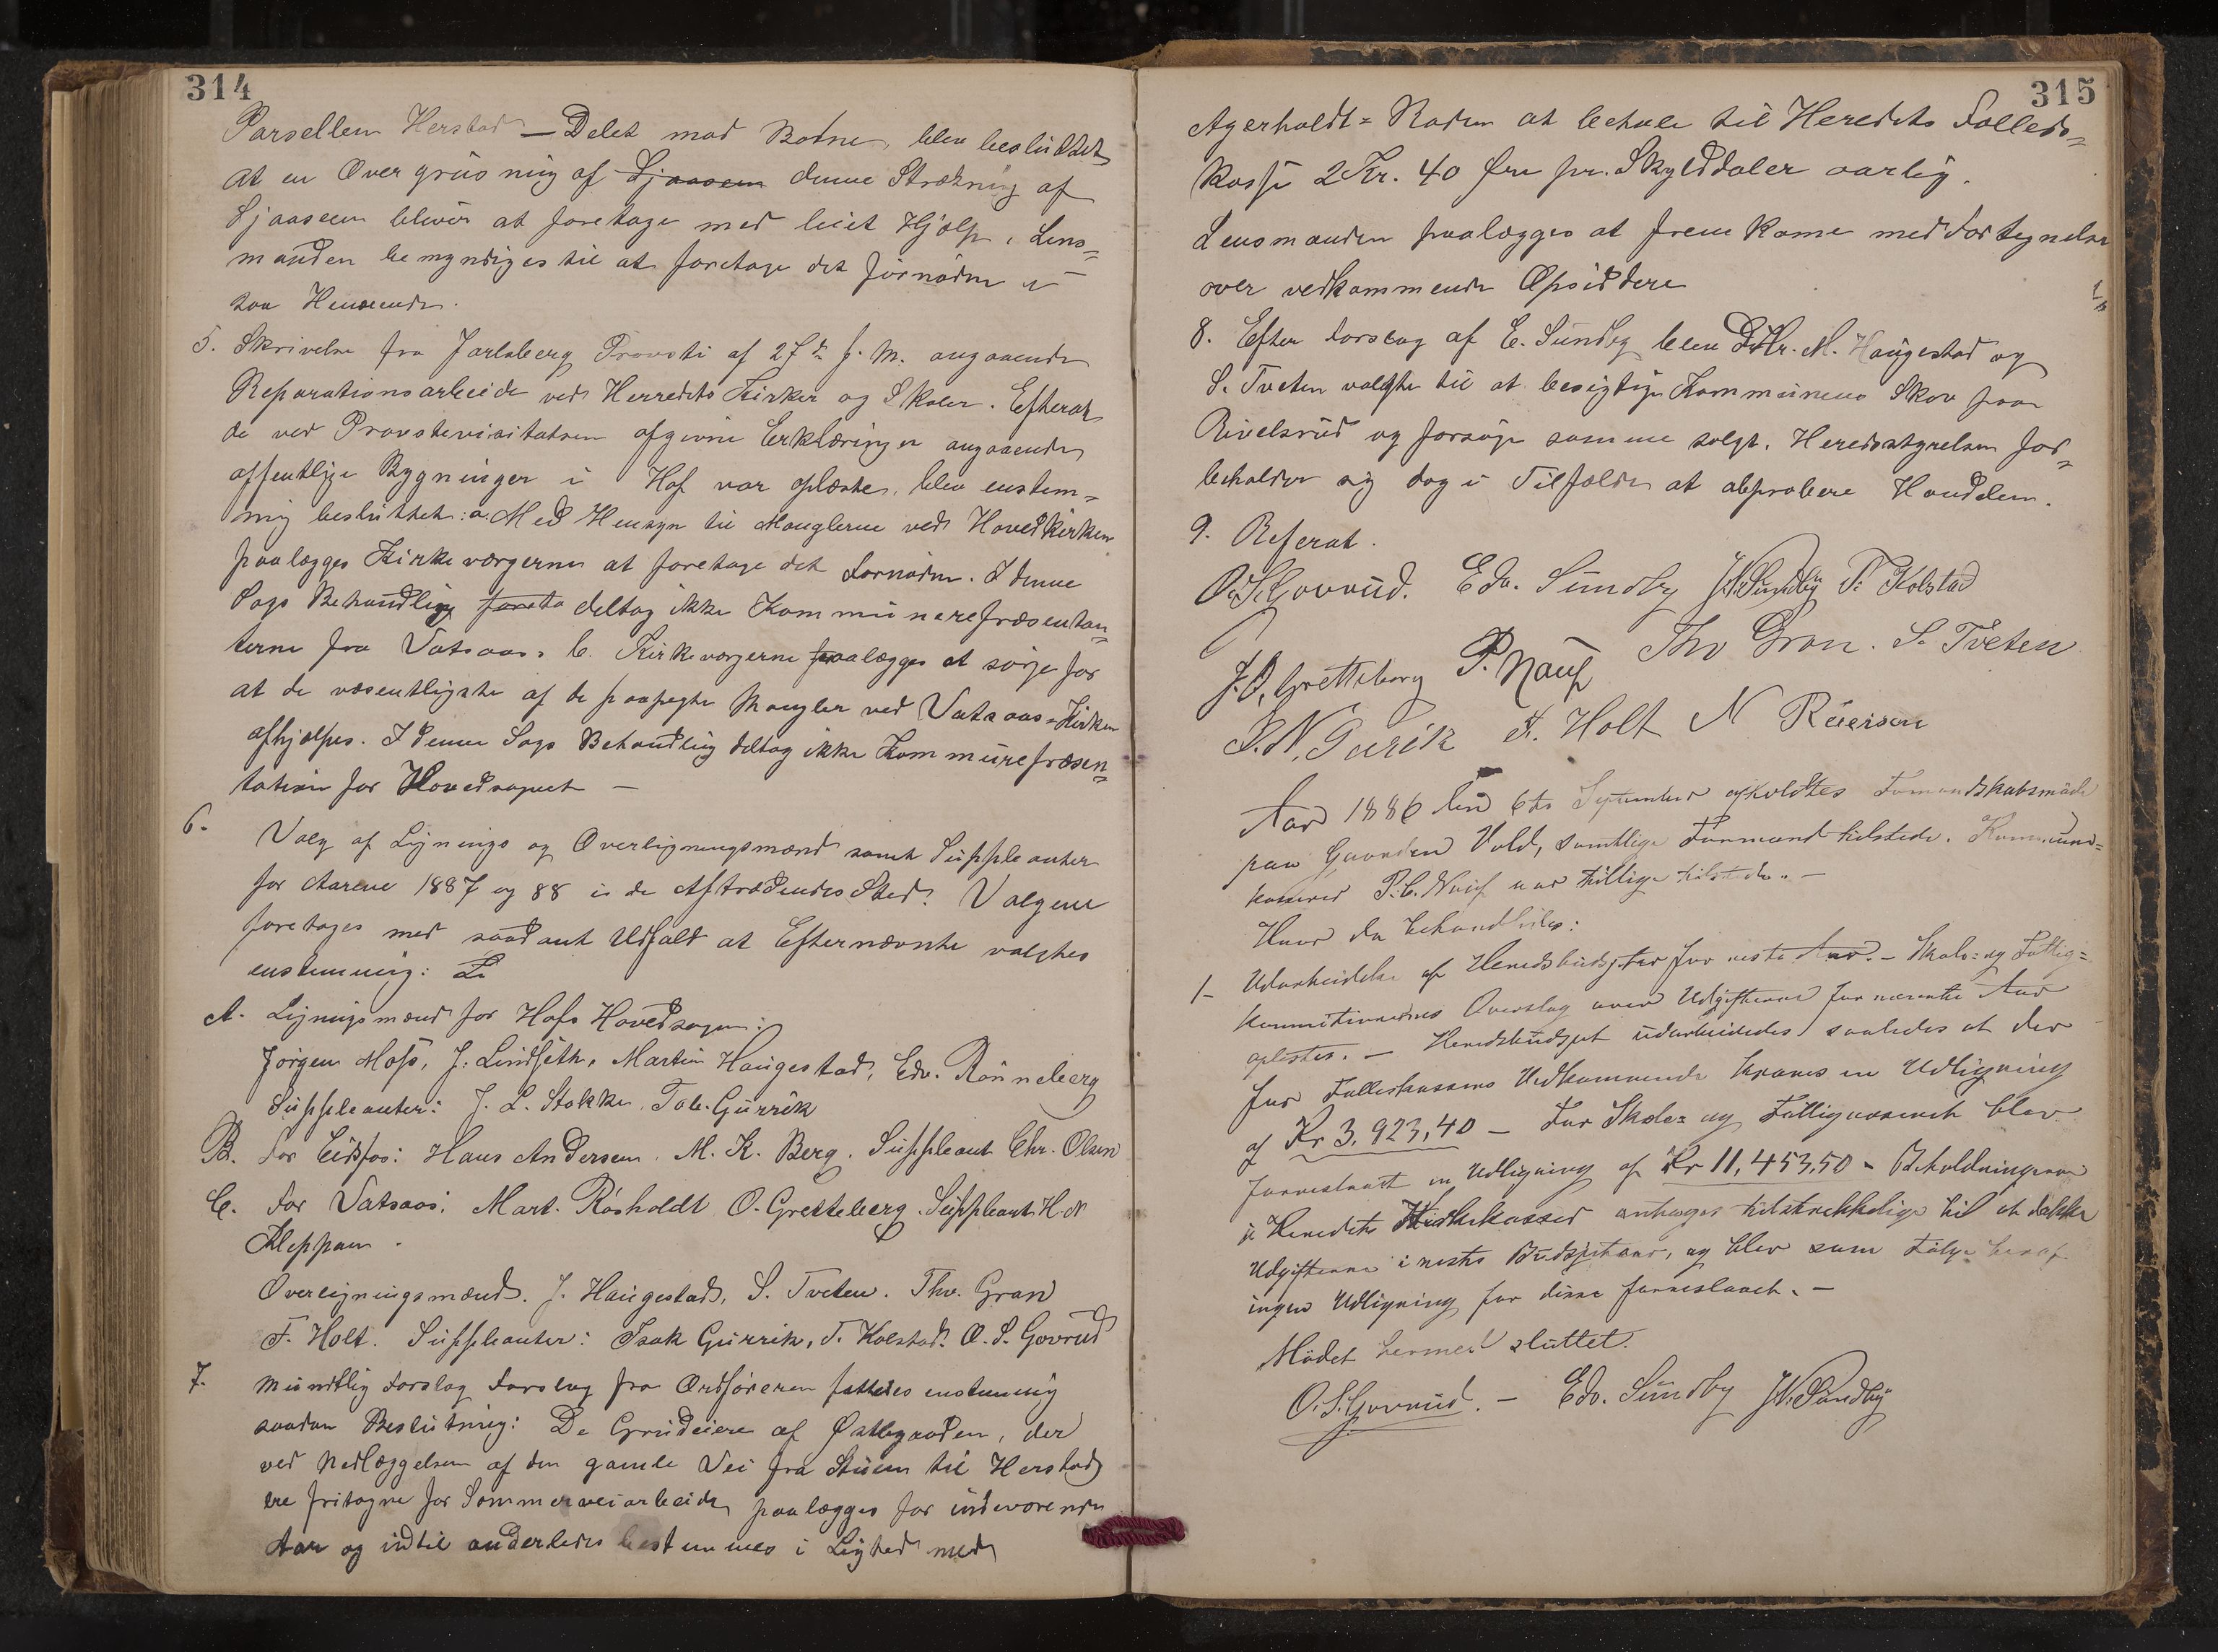 314
Parsellen Herstad — Delet mod Botne, blev besluttet
at en Overgrusning af Sjaasem denne Strækning af
Sjaaseen bliver at foretage med leiet Hjælp, Lens=
manden bemyndiges til at foretage det fornødne i
saa Henseende.
5. Skrivelse fra Jarlsberg Provsti af 27de f. M. angaaende
Reparationsarbeide ved Herredets Kirker og Skoler. Efterat
de ved Provstevisitatsen afgivne Erklæringer angaaende
offentlige Bygninger i Hof var oplæste, blev enstem=
mig besluttet: a. Med Hensyn til Manglerne ved Hovedkirken
paalægges Kirkeværgerne at foretage det Fornødne. I denne
Sags Behandling foreta deltog ikke Kommunerepræsentan=
terne fra Vatsaas. b. Kirkeværgerne paalægges at sørge for
at de væsentligste af de paapegte Mangler ved Vatsaas=Kirken
afhjælpes. I denne Sags Behandling deltog ikke Kommunrepræsen=
tation for Hovedsognet —
6.
Valg af Lignings og Overligningsmænd samt Suppleanter
for Aarene 1887 og 88 i de Aftrædendes Sted. Valgene
foretages med saadant Udfald at Efternævnte valgtes
enstemmig: L
A. Ligningsmænd for Hofs Hovedsogn:
Jørgen Moss, J. Lindseth, Martin Haugestad, Edv. Rønneberg
Suppleanter: J. L. Stokke, Tob. Gurrik
B. For Eidsfos: Hans Andersen, M. K. Berg. Suppleant Chr. Olsen
C. For Vatsaas: Mart. Røsholdt O. Gretteberg. Suppleant H. N
Kleppan.
Overligningsmænd. J. Haugestad, S. Tveten. Thv. Gran
F. Holt. Suppleanter: Isak Gurrik, T. Kolstad. O. S. Govrud
7. Mundtlig Forslag Forslag fra Ordføreren fattedes enstemmig
saadan Beslutning: De Grundeiere af Østbygden, der
ved Nedlæggelsen af den gamle Vei fra Stuen til Herstad
ere fritagne for Sommerveiarbeide paalægges for indeværende
Aar og indtil anderledes bestemmes i Lighed med
315
Agerholdt=Roden at betale til Heredets Fælleds=
kasse 2 Kr. 40 Øre pr. Skylddaler aarlig.
Lensmanden paalægges at fremkome med Fortegnelse
over vedkommende Opsiddere
8. Efter Forslag af E. Sundby blev DHr. M. Haugestad og
S. Tveten valgte til at besigtige Kommunens Skov paa
Rivelsrud og forsøge samme solgt. Heredsstyrelsen for=
beholder sig dog i Tilfælde at approbere Handelen.
9. Referat.
O. S. Govrud. Edv. Sundby J. N. Sundby T. Kolstad
J. O. Gretteberg P. Nauf Thv Gran. S. Tveten
I. N. Gurik F. Holt N Reiersen
Aar 1886 den 6te September afholdtes Formandskabsmøde
paa Gaarden Vold, samtlige Formænd tilstede. Kommune=
kasserer P. C. Nauf var tillige tilstede. —
Hvor da behandledes:
1— Udarbeidelse af Heredsbudjetter for næste Aar. — Skole= og Fattig=
kommissionernes Overslag over Udgifterne for næste Aar
oplæstes. — Heredsbudgjet udarbeidedes saaledes at der
for Fælleskassens Vedkommende kræves en Udligning
af Kr 3,923,40 — For Skole= og Fattigvæsenet blev
foreslaaet en Udligning af Kr 11,453,50 — Beholdningerne
i Heredets Kirkekasser antages tilstrækkelige til at dække
Udgifterne i næste Budgjetaar, og blev som Følge heraf
ingen Udligning for disse foreslaaet. —
Mødet hermed sluttet.
O. S. Govrud. — Edv. Sundby J. N. Sundby